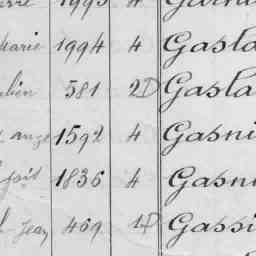 1995 4
Marie 1994 4 Gasla
lien 581 2D Gasla
ange 1592 4 Gasni
1836 4 Gasn
Jean 469 1D Gassi